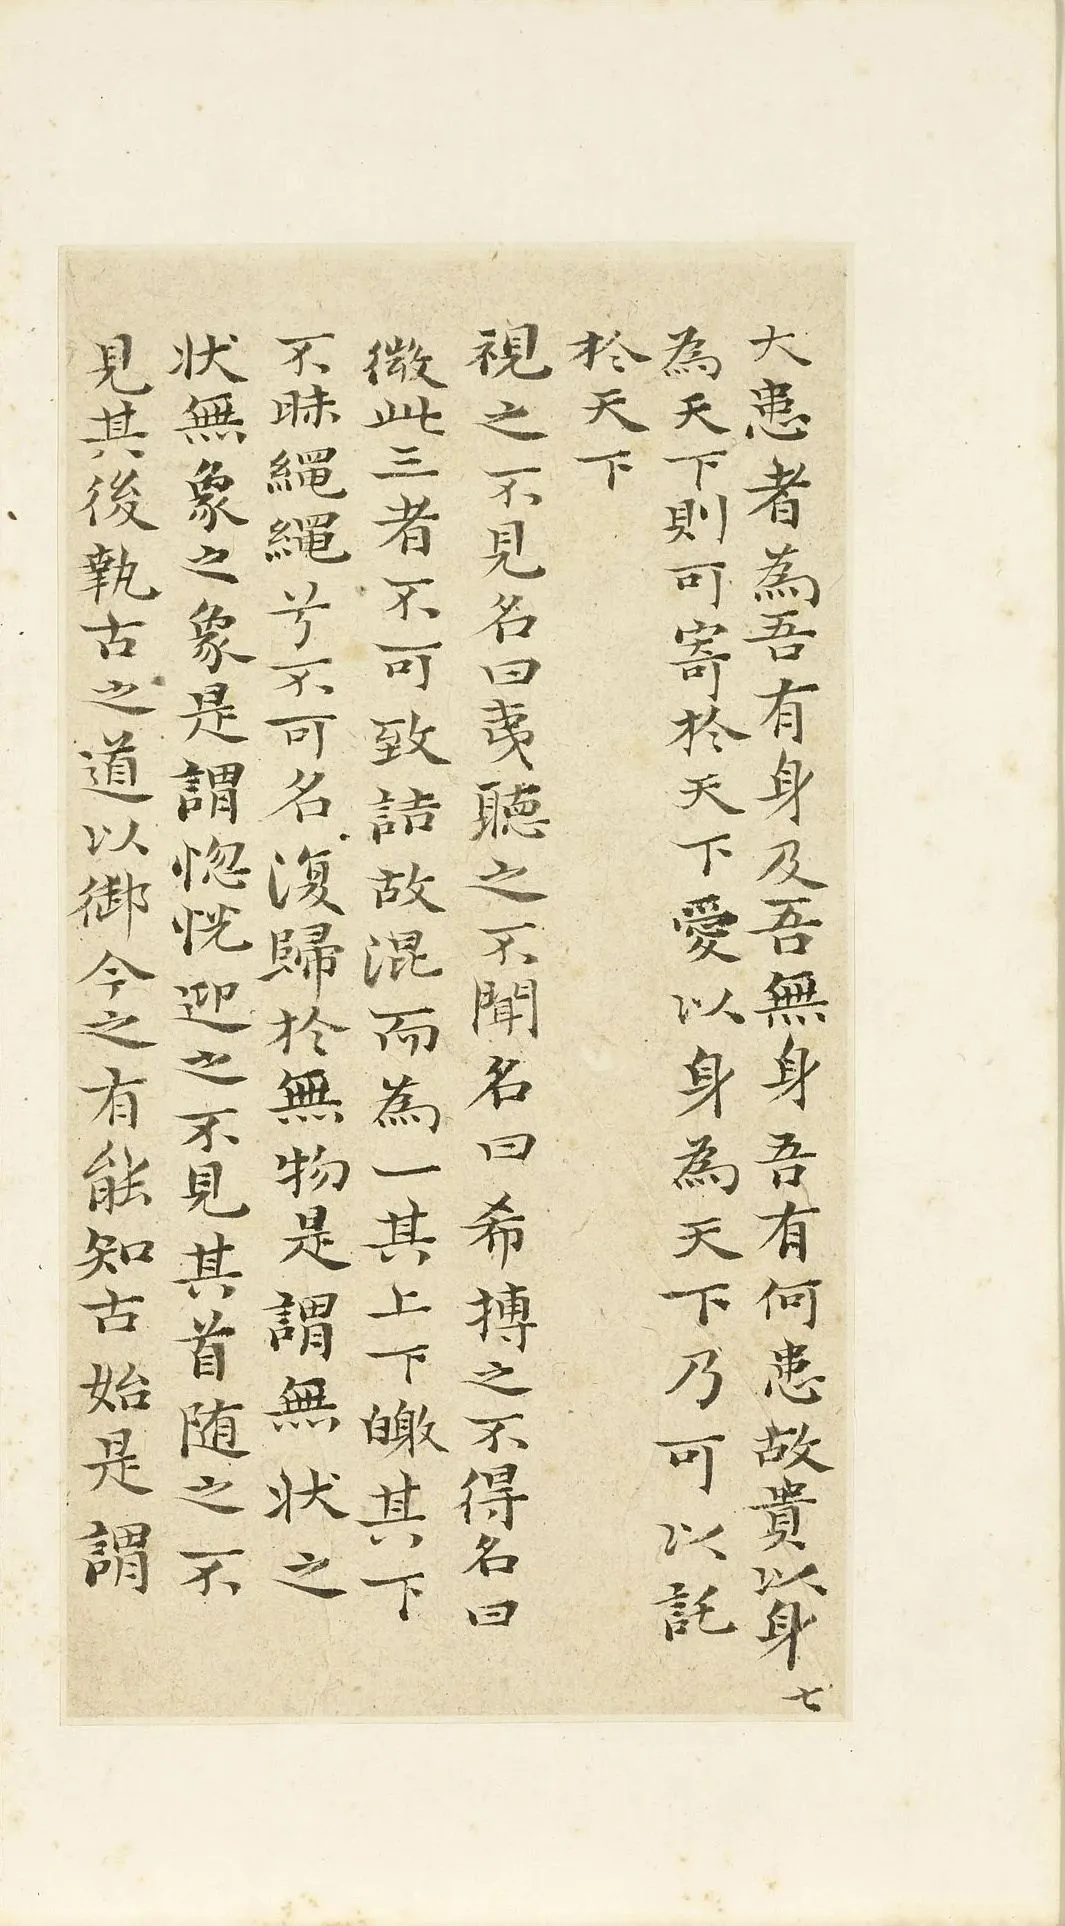 大患者為吾有身及吾無身吾有何患故貴以身
七
為天下則可寄於天下愛以身為天下乃可以託
於天下
視之不見名曰夷聽之不聞名曰希搏之不得名曰
微此三者不可致詰故混而為一其上下皦其下
不昧繩繩兮不可名復歸於無物是謂無狀之
狀無象之象是謂惚恍迎之不見其首随之不
見其後執古之道以御今之有能知古始是謂